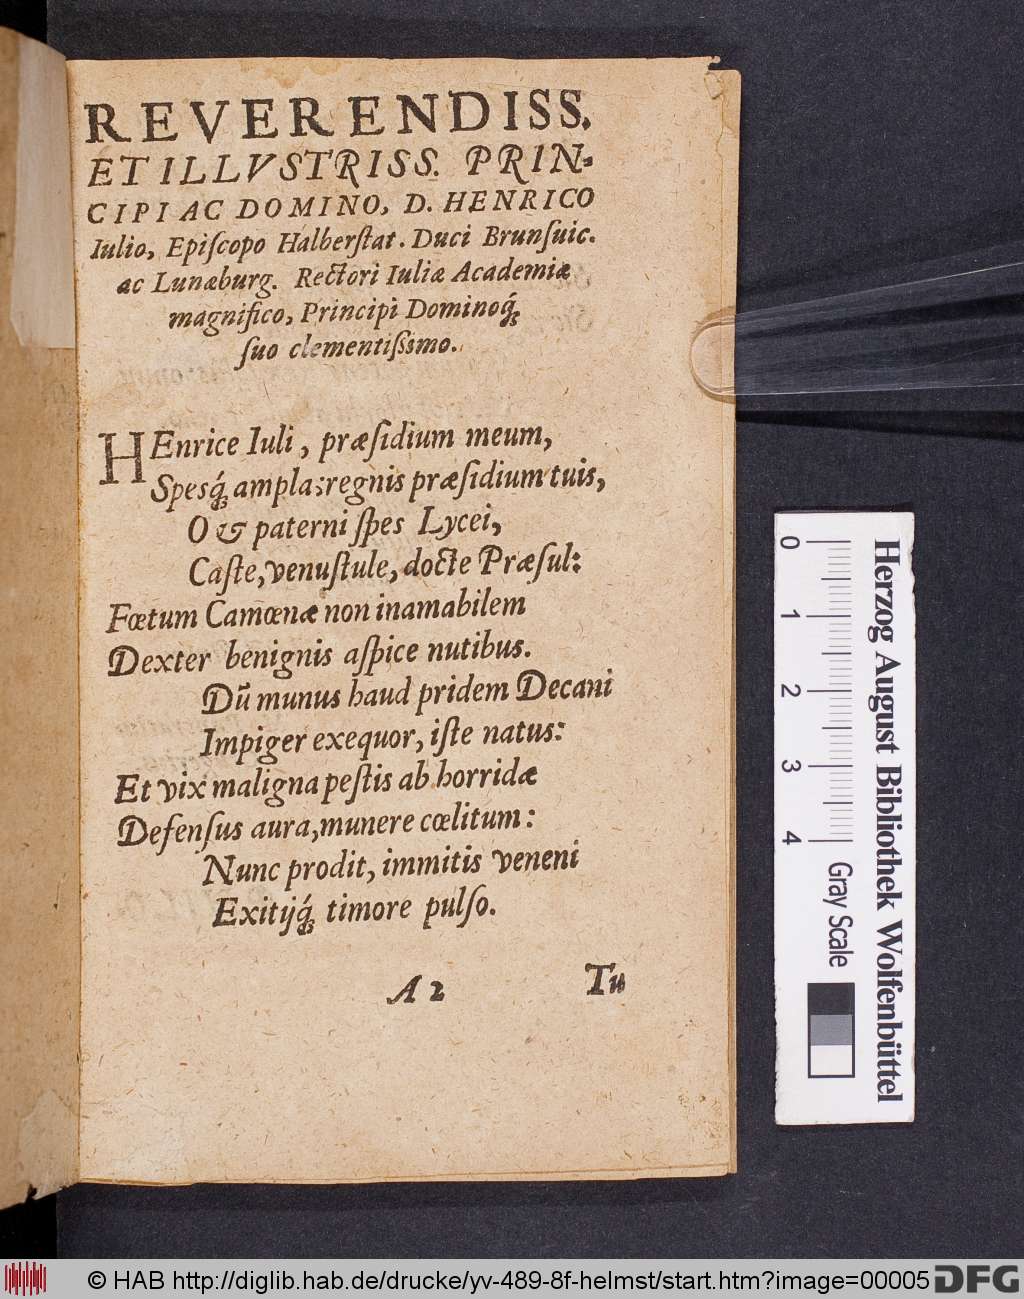 REVERENDISS.
ET ILLVSTRISS. PRIN-
CIPI AC DOMINO, D. HENRICO
Iulio, Epiſcopo Halberſtat. Duci Brunſuic.
ac Lunæburg. Rectori Iuliæ Academiæ
magnifico, Principi Dominoq́;
ſuo clementiſsimo.
HEnrice Iuli, præſidium meum,
Spesq́; ampla: regnis præſidium tuis,
O & paterni ſpes Lycei,
Caſte, venuſtule, docte Præſul:
Fœtum Camœnæ non inamabilem
Dexter benignis aſpice nutibus.
Dū munus haud pridem Decani
Impiger exequor, iſte natus:
Et vix maligna peſtis ab horridæ
Defenſus aura, munere cœlitum:
Nunc prodit, immitis veneni
Exitijq́; timore pulſo.
A 2 Tu
0 1 2 3 4 Gray Scale
Herzog August Bibliothek Wolfenbüttel
© HAB http://diglib.hab.de/drucke/yv-489-8f-helmst/start.htm?image=00005 DFG